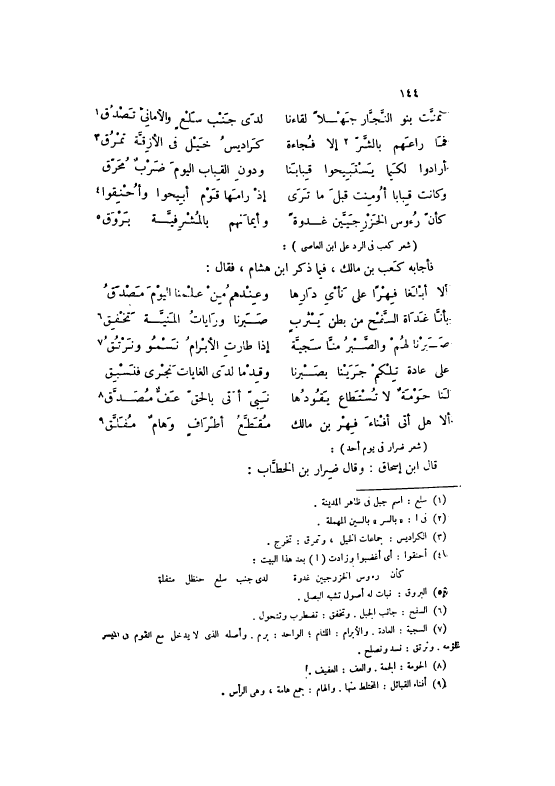 ١٤٤
تمنَّت بنو النَّجَّار جَهْلاً لقاءَنا لدى جَنْب سَلْعٍ والأمانىّ تَصْدُق١
فمَا راعَهم بالشَّرّ ٢ إلا فُجاءة كراديسُ خَيْل فى الأزِقَّة تمْرُق٣
أرادوا لكيما يَسْتبيحوا قِبابنَا ودون القِباب اليومَ ضَرْبٌ مُحَرَّق
وكانت قِبابا أُومِنت قبلَ ما تَرَى إذْ رامَها قَوْم أُبيحوا وأُحْنِقوا٤
كأنّ رُءوس الخَزْرجيِّين غُدوةً وأيمانَهم بالمُشرفيَّة بَرْوَق٥
( شعر كعب فى الرد على ابن العاصى ) :
فأجابه كعب بن مالك ، فيما ذكر ابن هشام ، فقال :
ألا أبْلغا فِهْرًا على نَأْى دَارِها وعِنْدهمُ مِنْ عِلْمنا اليَوْمَ مَصْدَقُ
بأنَّا غَدَاةَ السَّفْح من بطن يَثْربٍ صَبَرنا وراياتُ المَنيَّة تَخْفِق٦
صَبَرْنا لهُم والصَّبْرُ منَّا سَجيَّة إذا طارت الأبْرامُ نَسْمُو ونَرْتُق٧
على عادة تِلْكم جَرَيْنا بصَبْرنا وقِدْما لدَى الغايات نَجْرى فنَسْبِق
لنا حَوْمَةٌ لا تُسْتطاع يَقودُها نَبِىّ أتَى بالحَقّ عَفٌّ مُصدَّق٨
ألا هل أتى أفْناءَ فِهْر بن مالك مُقَطَّعُ أطْرافٍ وَهامٌ مُفَلَّق٩
( شعر ضرار فى يوم أحد ) :
قال ابن إسحاق : وقال ضِرار بن الخطَّاب :
(١) سلع : اسم جبل فى ظاهر المدينة .
(٢) فى ا : « بالسر » بالسين المهملة .
(٣) الكراديس : جماعات الخيل ، وتمرق : تخرج .
(٤) أحنقوا : أى أغضبوا وزادت ( ا ) بعد هذا البيت :
كأن رءوس الخزرجيين غدوة لدى جنب سلع حنظل متفلق
(٥) البروق : نبات له أصول تشبه البصل .
(٦) السفح : جانب الجبل . وتخفق : تضطرب وتتحول .
(٧) السجية : العادة . والأبرام : اللئام ؛ الواحد : برم . وأصله الذى لا يدخل مع القوم فى الميسر
للؤمه . ونرتق : نسد ونصلح .
(٨) الحومة : الجمة . والعف : العفيف .
(٩) أفناء القبائل : المختلط منها . والهام : جمع هامة ، وهى الرأس .